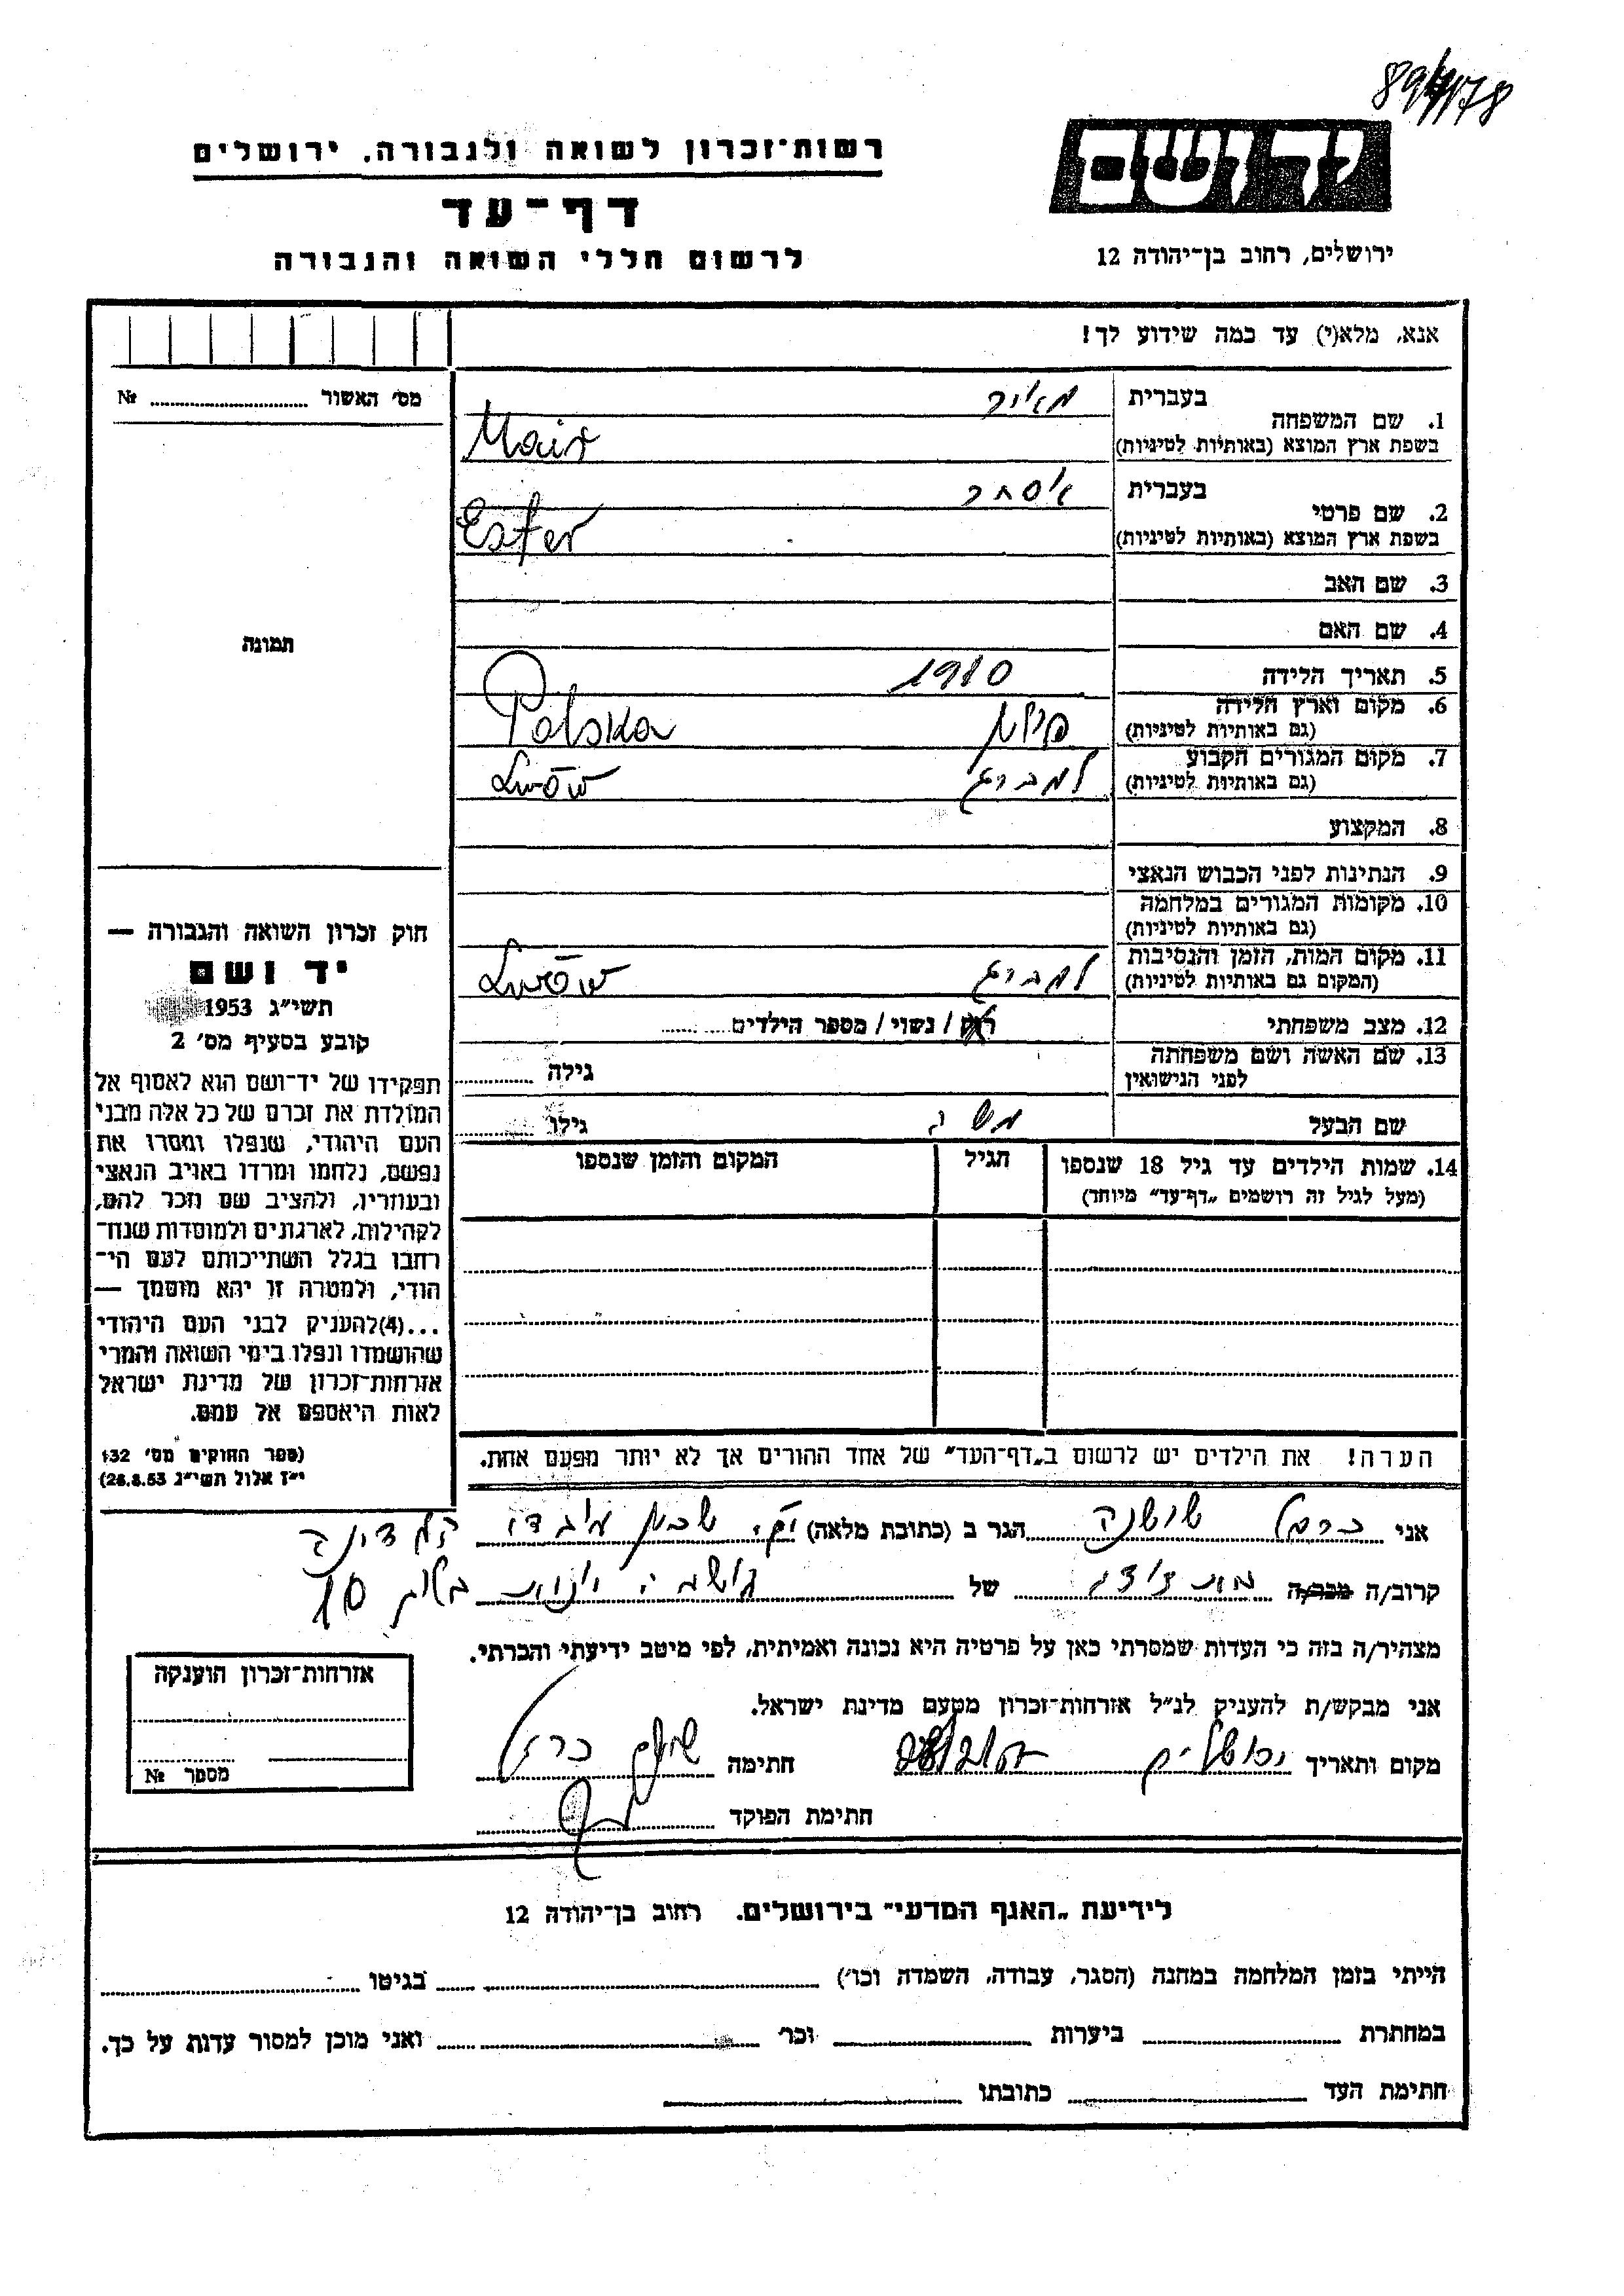 89/4/178
רשות־זכרון לשואה ולגבורה. ירושלים
יד ושם
דף־עד
לרשום חללי השואה והגבורה
ירושלים, רחוב בן־יהודה 12
אנא, מלא(י) עד כמה שידוע לך!
מס׳ האשור ........ №
1. שם המשפחה
בעברית
מאיר
בשפת ארץ המוצא (באותיות לטיניות)
Mair
2. שם פרטי
בעברית
אסתר
בשפת ארץ המוצא (באותיות לטיניות)
Ester
3. שם האב
4. שם האם
תמונה
5. תאריך הלידה
1910
6. מקום וארץ הלידה
(גם באותיות לטיניות)
פולין Polska
7. מקום המגורים הקבוע
(גם באותיות לטיניות)
למברג Lwów
8. המקצוע
9. הנתינות לפני הכבוש הנאצי
10. מקומות המגורים במלחמה
(גם באותיות לטיניות)
11. מקום המות, הזמן והנסיבות
(המקום גם באותיות לטיניות)
למברג Lwów
12. מצב משפחתי
רוק / נשוי / מספר הילדים........
13. שם האשה ושם משפחתה
לפני הנישואין
גילה ........
שם הבעל
משה
גילו ........
14. שמות הילדים עד גיל 18 שנספו
(מעל לגיל זה רושמים „דף־עד״ מיוחד)
הגיל
המקום והזמן שנספו
חוק זכרון השואה והגבורה —
יד ושם
תשי״ג 1953
קובע בסעיף מס׳ 2
תפקידו של יד־ושם הוא לאסוף אל
המולדת את זכרם של כל אלה מבני
העם היהודי, שנפלו ומסרו את
נפשם, נלחמו ומרדו באויב הנאצי
ובעוזריו, ולהציב שם וזכר להם,
לקהילות, לארגונים ולמוסדות שנח־
רחבו בגלל השתייכותם לעם הי־
הודי, ולמטרה זו יהא מוסמך —
...(4)להעניק לבני העם היהודי
שהושמדו ונפלו בימי השואה והמרי
אזרחות־זכרון של מדינת ישראל
לאות היאספם אל עמם.
(ספר החוקים מס׳ 132
י״ז אלול תשי״ג 28.8.53)
הערה! את הילדים יש לרשום ב„דף־העד״ של אחד ההורים אך לא יותר מפעם אחת.
אני כרמל שושנה הגר ב (כתובת מלאה)
קרוב/ה מכר/ה של
10
מצהיר/ה בזה כי העדות שמסרתי כאן על פרטיה היא נכונה ואמיתית, לפי מיטב ידיעתי והכרתי.
אני מבקש/ת להעניק לנ״ל אזרחות־זכרון מטעם מדינת ישראל.
מקום ותאריך ירושלים חתימה
חתימת הפוקד
אזרחות־זכרון הוענקה
מספר №
לידיעת „האגף המדעי״ בירושלים. רחוב בן־יהודה 12
הייתי בזמן המלחמה במחנה (הסגר, עבודה, השמדה וכו׳) ........ בגיטו ........
במחתרת ........ ביערות ........ וכו׳ ........ ואני מוכן למסור עדות על כך.
חתימת העד ........ כתובתו ........